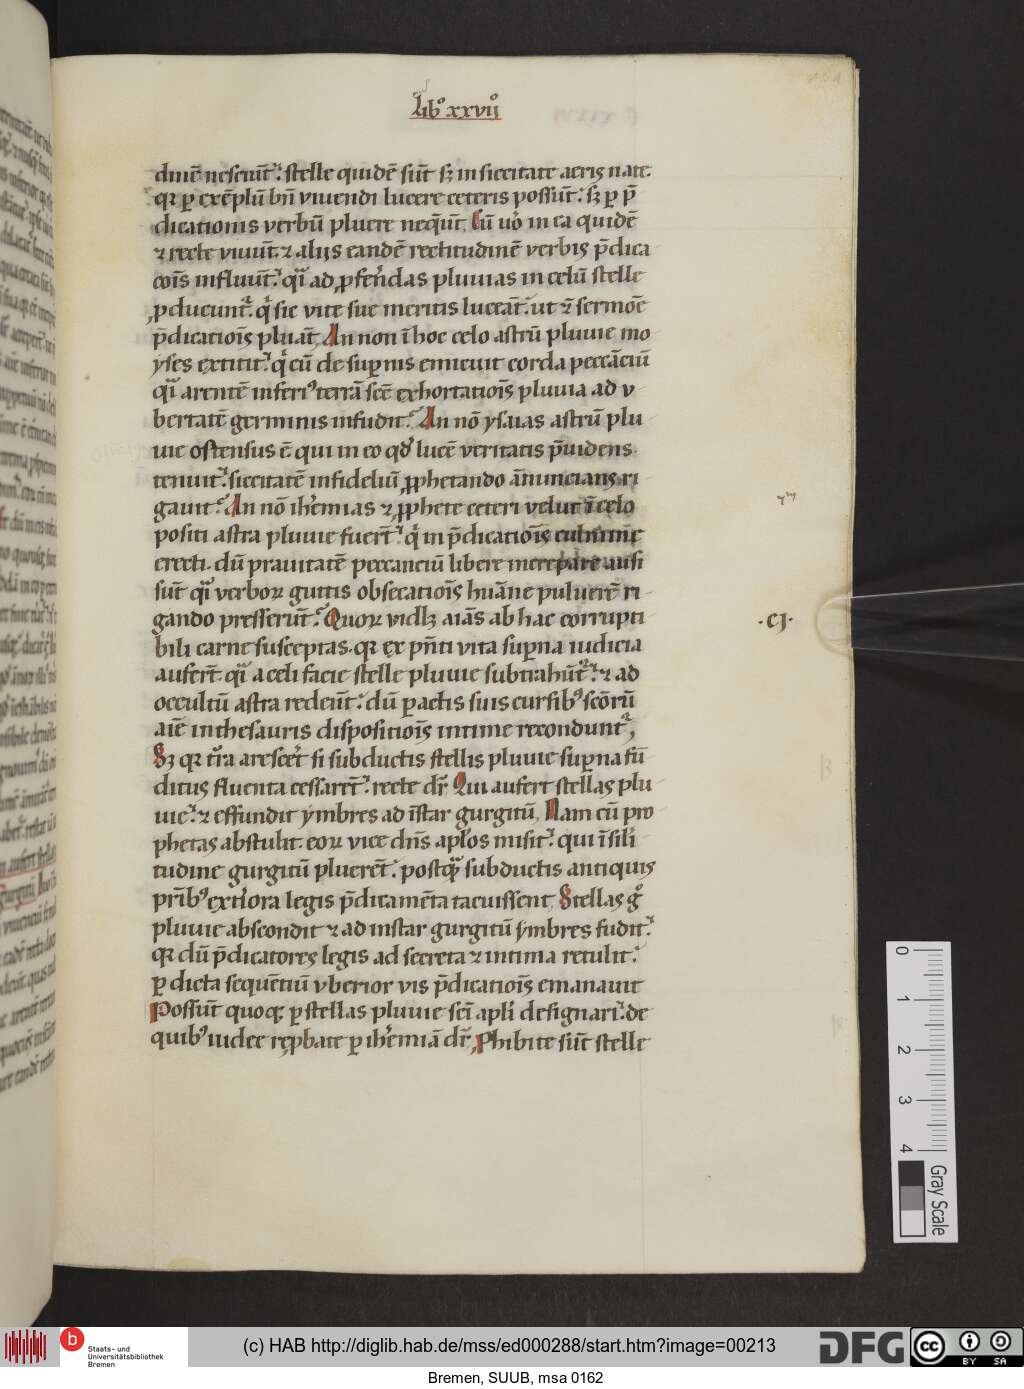 Lib' xxvij
dinē nesciūt. stelle quidē sūt sꝫ in siccitate aeris nate.
qꝛ ꝑ exēplū bn̄ viuendi lucere ceteris possūt. sꝫ ꝑ p̄
dicationis verbū pluere neq̄ūt. Cū uo in ea quidē
⁊ recte viuūt. ⁊ alijs eandē rectitudinē verbis p̄dica
cōis influūt. q̄i ad ꝓferēdas pluuias in celū stelle
ꝓducunt. q̇ sic vite sue meritis luceāt. ut ⁊ sermōe
p̄dicatiōis pluāt. An non ī hoc celo astrū pluuie mo
yses extitit. q̇ cū de supnis emicuit corda peccāciū
q̄i arentē inferi' terrā scē exhortatiōis pluuia ad v
bertatē germinis infudit. An nō ysaias astrū plu
uie ostensus ē qui in eo qd' lucē veritatis p̄uidens
tenuit. siccitatē infideliū ꝓphetando ānuncians ri
gauit. An nō ih'emias ⁊ ꝓphete ceteri velut ī celo
positi astra pluuie fuerūt. q̇ in p̄dicatiōis culmine
erecti. dū prauitatē peccanciū libere increpare ausi
sūt q̄i verboꝝ guttis obsecatiōis huāne puluerē ri
gando presserūt. Quoꝝ vidlꝫ aīas ab hac corrupti
.CJ.
bili carne susceptas. qꝛ ex pn̄ti vita supna iudicia
auferūt. q̄i a celi facie stelle pluuie subtrahūt. ⁊ ad
occultū astra redeūt. dū ꝑactis suis cursib' scōrū
aīe in thesauris dispositiōis intime recondunt,
Sꝫ qꝛ tr̄a aresceret si subductis stellis pluuie supna fū
ditus fluenta cessaret. recte dr̄ Qui aufert stellas plu
uie. ⁊ effundit ymbres ad īstar gurgitū. Nam cū pro
phetas abstulit. eoꝝ vice dn̄s apl'os misit. qui ī sili
tudine gurgitū pluerēt. postq̄ subductis antiquis
prīb' exteriora legis p̄dicamēta tacuissent Stellas g°
pluuie abscondit ⁊ ad instar gurgitū ymbres fudit.
qꝛ dū p̄dicatores legis ad secreta ⁊ intima retulit.
ꝑ dicta sequētiū vberior vis p̄dicatiōis emanauit
Possūt quoqꝫ ꝑ stellas pluuie scī apl'i designari. de
quib' iudee reꝓbate ꝑ ih'emiā dr̄, Phibite sūt stelle
0 1 2 3 4
Gray Scale
Staats- und
Universitätsbibliothek
Bremen
(c) HAB http://diglib.hab.de/mss/ed000288/start.htm?image=00213
DFG
cc BY SA
Bremen, SUUB, msa 0162